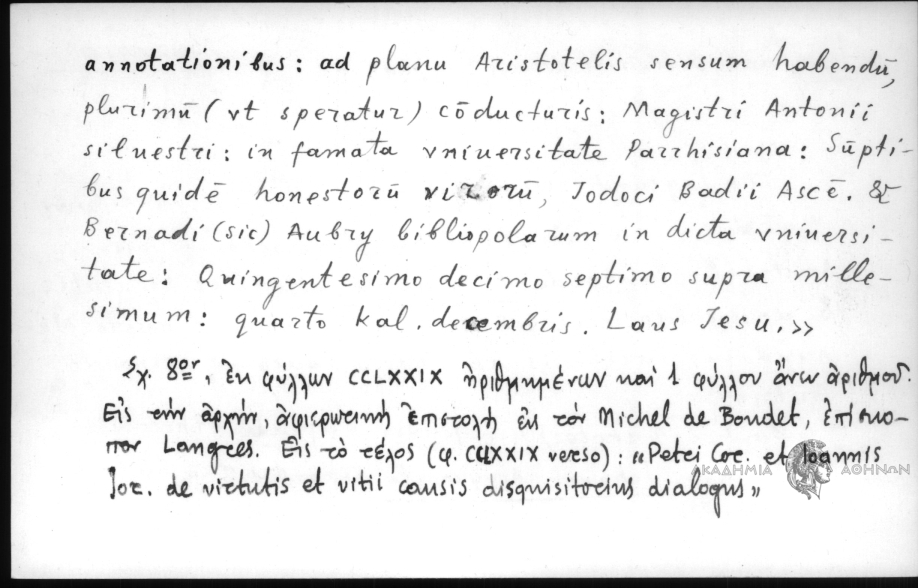 annotationibus: ad planū Aristotelis sensum habendū,
plurimū (vt speratur) cōducturis: Magistri Antonii
siluestri: in famata vniuersitate Parrhisiana: Sūpti-
bus quidē honestorū virorū, Jodoci Badii Ascē. &
Bernadi (sic) Aubry bibliopolarum in dicta vniuersi-
tate: Quingentesimo decimo septimo supra mille-
simum: quarto kal. decembris. Laus Jesu.»
Σχ. 8ον, ἐκ φύλλων CCLXXIX ἠριθμημένων καὶ 1 φύλλου ἄνευ ἀριθμοῦ.
Εἰς τὴν ἀρχήν, ἀφιερωτικὴ ἐπιστολὴ εἰς τὸν Michel de Boudet, ἐπίσκο-
πον Langres. Εἰς τὸ τέλος (φ. CCLXXIX verso): «Petri Cor. et Ioannis
Jor. de virtutis et vitii causis disquisitorius dialogus»
ΑΚΑΔΗΜΙΑ ΑΘΗΝΩΝ